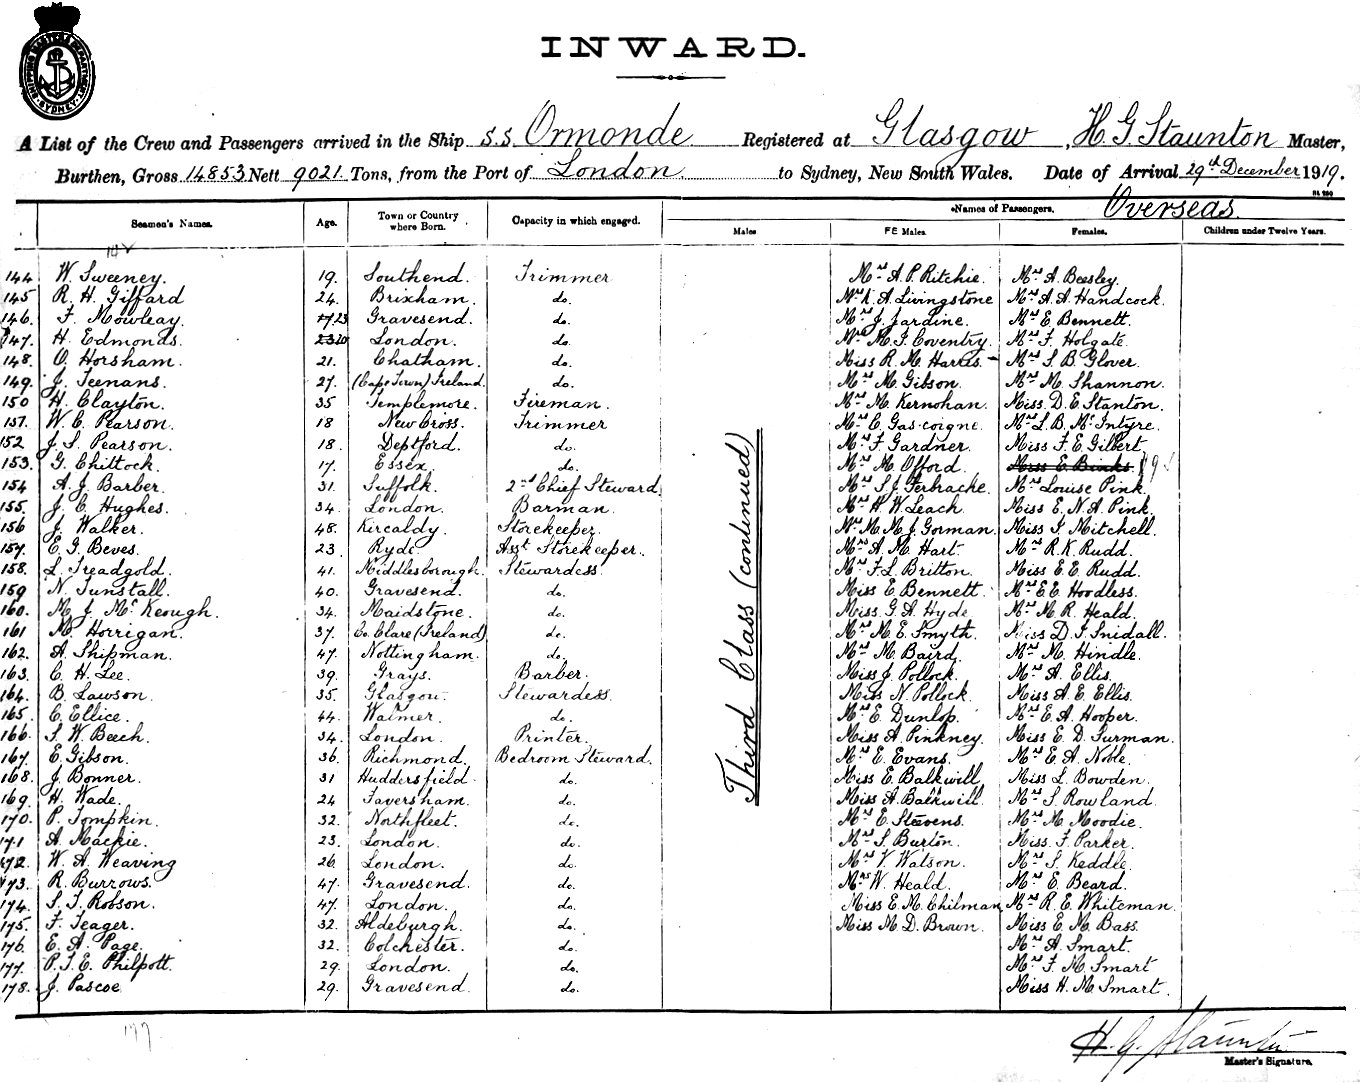 SHIPPING MASTER'S DEPARTMENT SYDNEY
INWARD.
A List of the Crew and Passengers arrived in the Ship S.S. Ormonde Registered at Glasgow, H. G. Staunton Master,
Burthen, Gross 14853 Nett 9021 Tons, from the Port of London to Sydney, New South Wales. Date of Arrival 29th December 1919.
Seamen's Names. Age. Town or Country where Born. Capacity in which engaged. Names of Passengers. Overseas.
Males FEMales. Females. Children under Twelve Years.
144 W. Sweeney. 19. Southend. Trimmer Mrs A. P. Ritchie. Mrs A. Beesley.
145 R. H. Giffard 24. Brixham. do. A. Livingstone Mrs A. A. Handcock.
146. F. Mowleay. 23 Gravesend. do. Mrs J. Jardine. Mrs E. Bennett.
147. H. Edmonds. London. do. Mrs M. J. Coventry. Mrs F. Holgate.
148. O. Horsham. 21. Chatham. do. Miss R. M. Harris. Mrs S. B. Glover.
149. J. Teenans. 27. (Cape Town) Ireland. do. Mrs M. Gibson. Mrs M. Shannon.
150 H. Clayton. 35 Templemore. Fireman. Mrs M. Kernohan. Miss. D. E. Stanton.
151. W. C. Pearson. 18 New Cross. Trimmer Mrs E. Gascoigne. Mrs L. B. McIntyre.
152. J. S. Pearson. 18. Deptford. do. Mrs F. Gardner. Miss F. E. Gilbert
153. G. Chittock. 17. Essex. do. Mrs M. Offord. Miss E. Binks
154 A. J. Barber. 31. Suffolk. 2nd Chief Steward. Mrs S. J. Ferbrache. Mrs Louise Pink.
155. J. C. Hughes. 34. London. Barman. Mrs H. W. Leach. Miss E. N. A. Pink.
156 J. Walker. 48. Kircaldy. Storekeeper. Mrs M. M. J. Gorman. Miss S. Mitchell.
157. E. G. Beves. 23. Ryde. Asst Storekeeper. Mrs A. M. Hart. Mrs R. K. Rudd.
158. L. Treadgold. 41. Middlesborough. Stewardess. Mrs F. L. Britton. Miss E. E. Rudd.
159 N. Tunstall. 40. Gravesend. do. Miss E. Bennett. Mrs E. E. Hoodless.
160. M. J. McKeough. 34. Maidstone. do. Miss. G. A. Hyde Mrs M. R. Heald.
161 M. Horrigan. 37. Co. Clare (Ireland) do. Mrs M. E. Smyth. Miss D. J. Snidall.
162. A. Shipman. 47. Nottingham. do. Mrs M. Baird. Mrs M. Hindle.
163. C. H. Lee. 39. Grays. Barber. Miss J. Pollock. Mrs A. Ellis.
164. B. Lawson. 35. Glasgow. Stewardess. Miss N. Pollock. Miss A. E. Ellis.
165. C. Ellice. 44. Walmer. do. Mrs E. Dunlop. Mrs E. A. Hooper.
166. S. W. Beech. 34. London. Printer. Miss A. Pinkney. Miss E. D. Furman.
167. E. Gibson. 36. Richmond. Bedroom Steward. Mrs E. Evans. Mrs E. A. Noble.
168. J. Bonner. 31 Huddersfield. do. Miss E. Balkwill Miss L. Bowden.
169. H. Wade. 24 Faversham. do. Miss A. Balkwill. Mrs S. Rowland.
170. P. Tompkin. 32. Northfleet. do. Mrs E. Stevens. Mrs M. Moodie.
171 A. Mackie. 23. London. do. Mrs S. Burton. Miss. F. Parker.
172. W. A. Weaving 26. London. do. Mrs V. Watson. Mrs S. Keddle.
173. R. Burrows. 47. Gravesend. do. Mrs W. Heald. Mrs E. Beard.
174. S. J. Robson. 47. London. do. Miss E. M. Chilman. Mrs R. E. Whiteman.
175. F. Teager. 32. Aldeburgh. do. Miss M. D. Brown. Miss E. M. Bass.
176. E. A. Page. 32. Colchester. do. Mrs A. Smart.
177. P. J. E. Philpott. 29. London. do. Mrs F. M. Smart
178. J. Pascoe 29. Gravesend. do. Miss H. M. Smart.
Third Class (continued)
177
H. G. Staunton
Master's Signature.